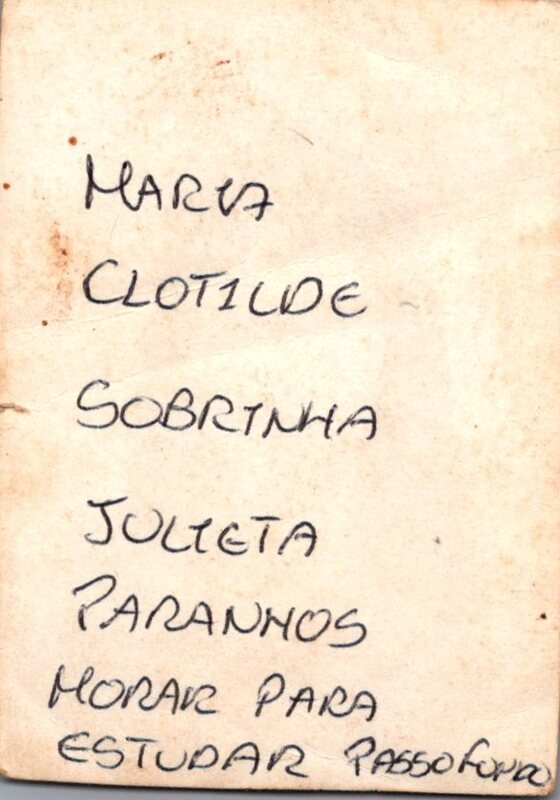 MARIA
CLOTILDE
SOBRINHA
JULIETA
PARANHOS
MORAR PARA
ESTUDAR PASSO FUNDO